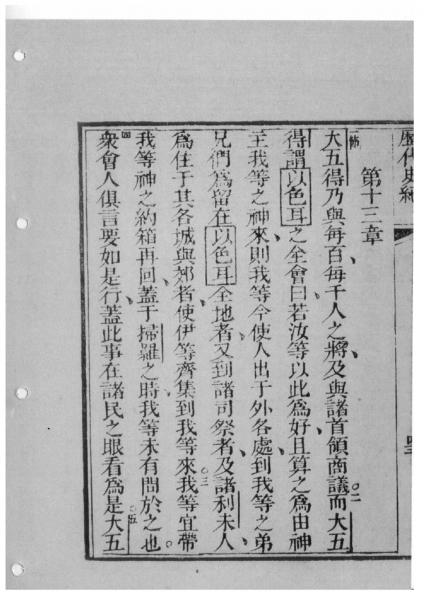 歷代史紀
第十三章
一節大五得乃與每百每千人之將及與諸首領商議而○二大五
得謂以色耳之全會曰若汝等以此爲好且算之爲由神
主我等之神來則我等今使人出于外各處到我等之弟
兄們爲留在以色耳全地者又到諸司祭者及諸利未人
爲住于其各城與郊者使伊等齊集到我等來○三我等宜帶
我等神之約箱再回蓋于掃羅之時我等未有問於之也。
四衆會人俱言要如是行蓋此事在諸民之眼看爲是○五大五